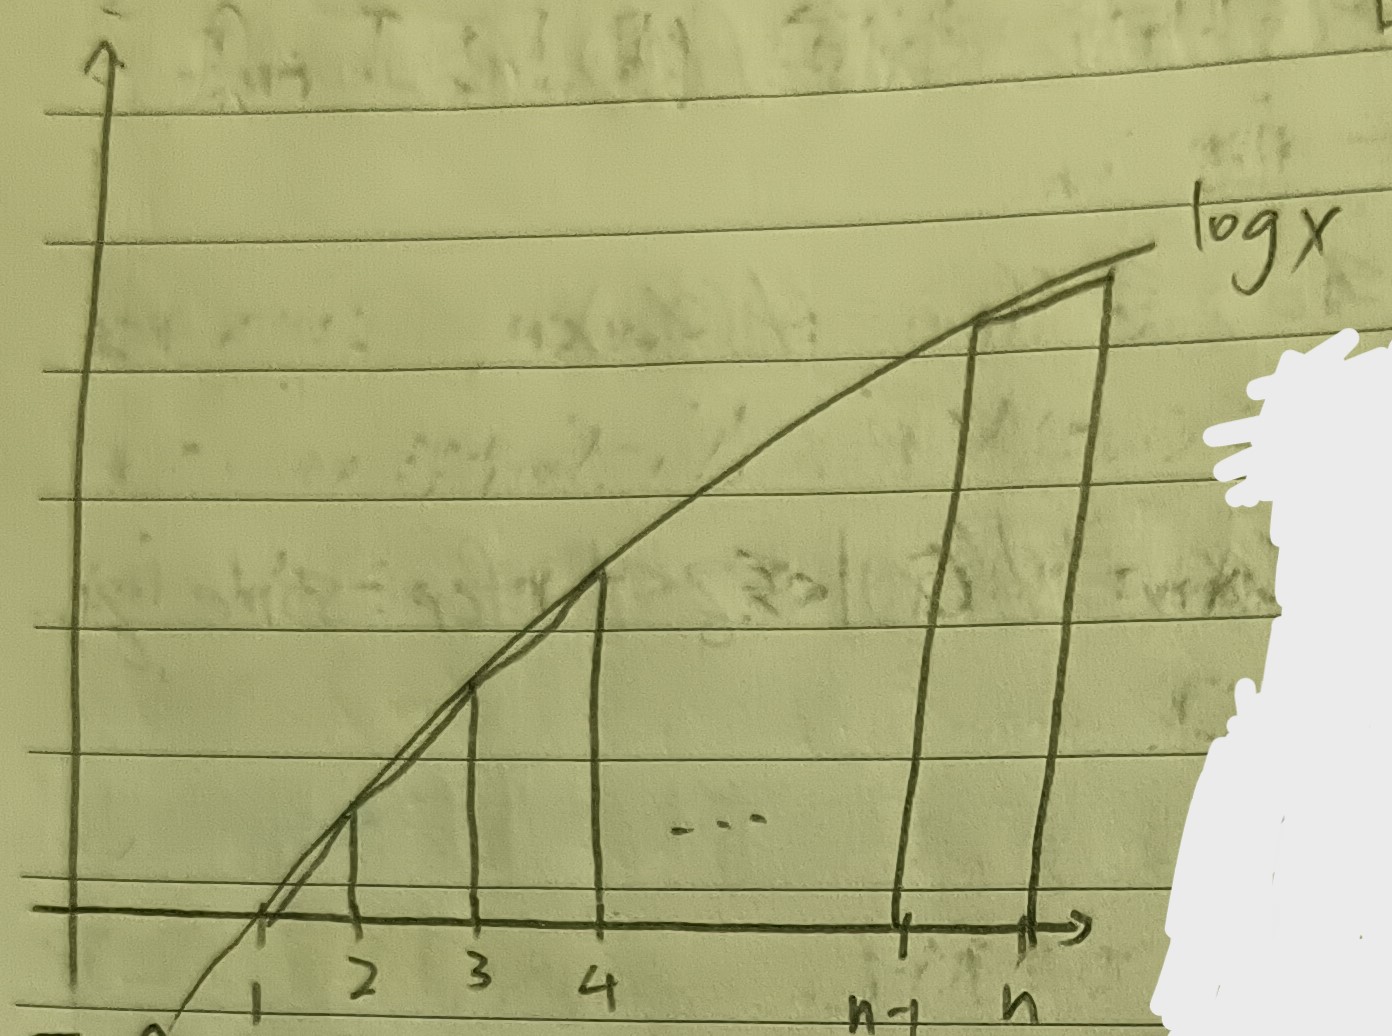 log x
1 2 3 4 ... n-1 n